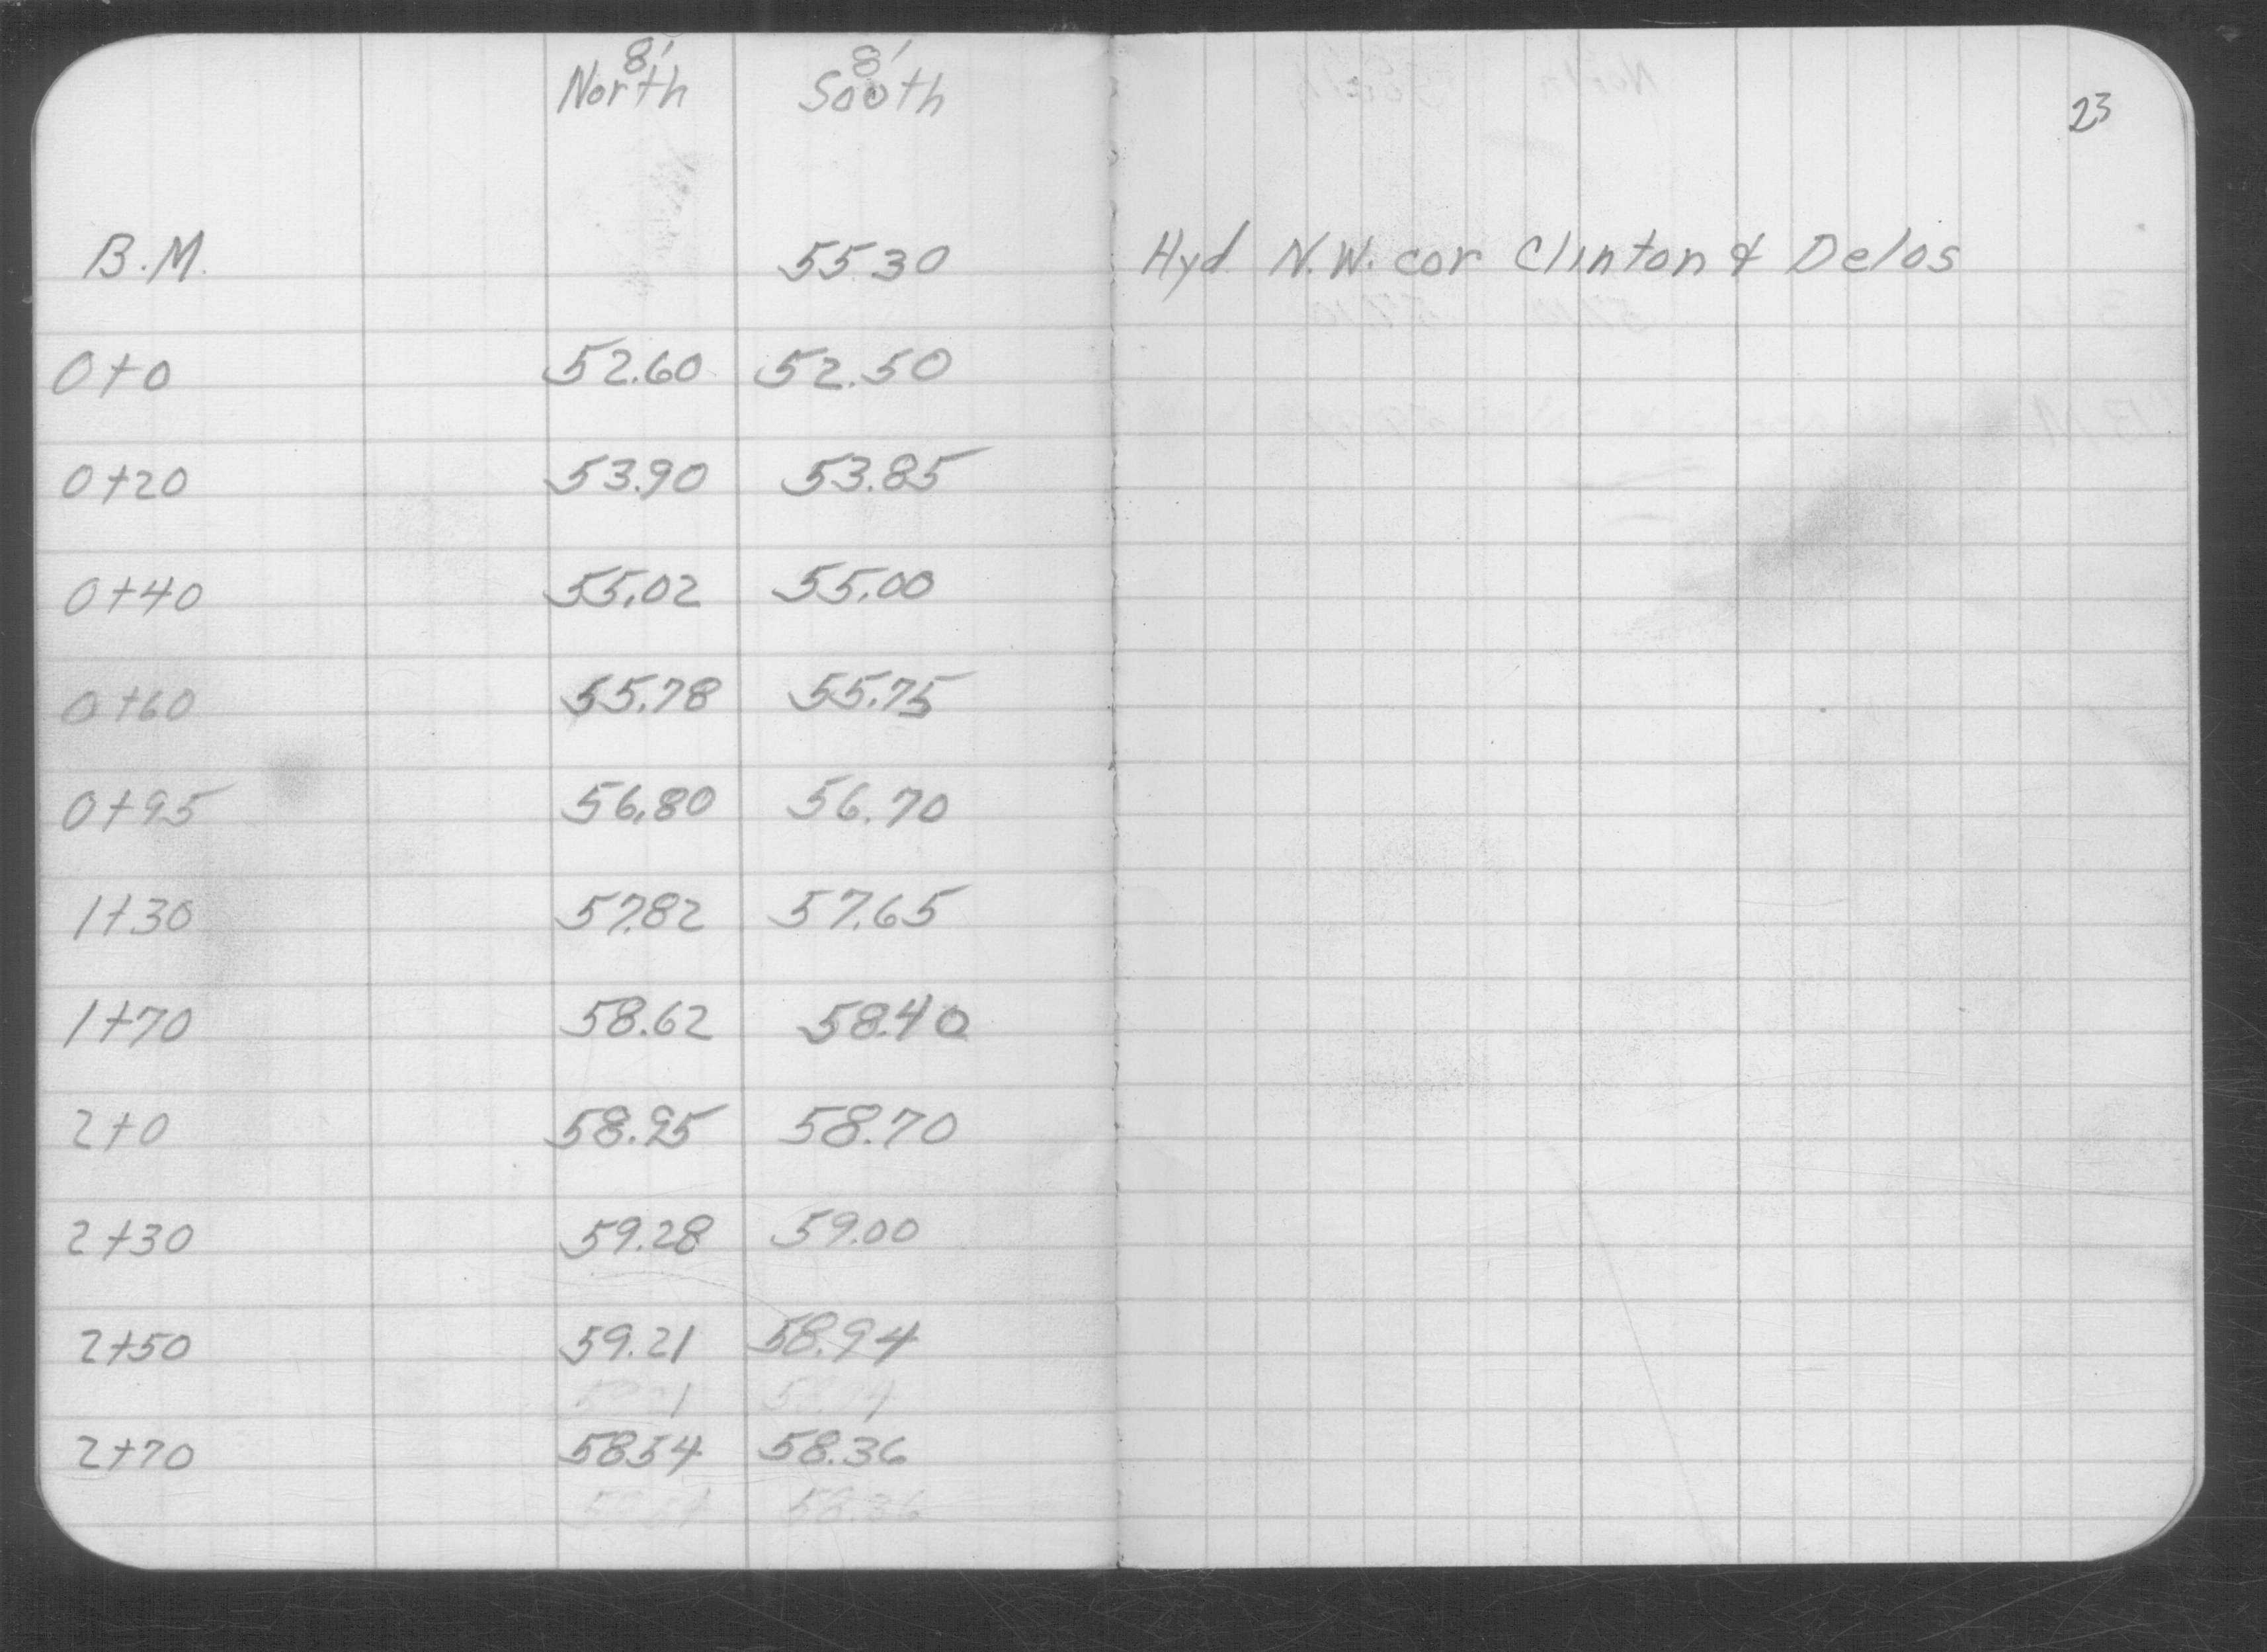 8' 8'
North South
23
B.M. 55.30 Hyd N.W. cor Clinton & Delos
0+0 52.60 52.50
0+20 53.90 53.85
0+40 55.02 55.00
0+60 55.78 55.75
0+95 56.80 56.70
1+30 57.82 57.65
1+70 58.62 58.40
2+0 58.95 58.70
2+30 59.28 59.00
2+50 59.21 58.94
2+70 58.54 58.36
58.36